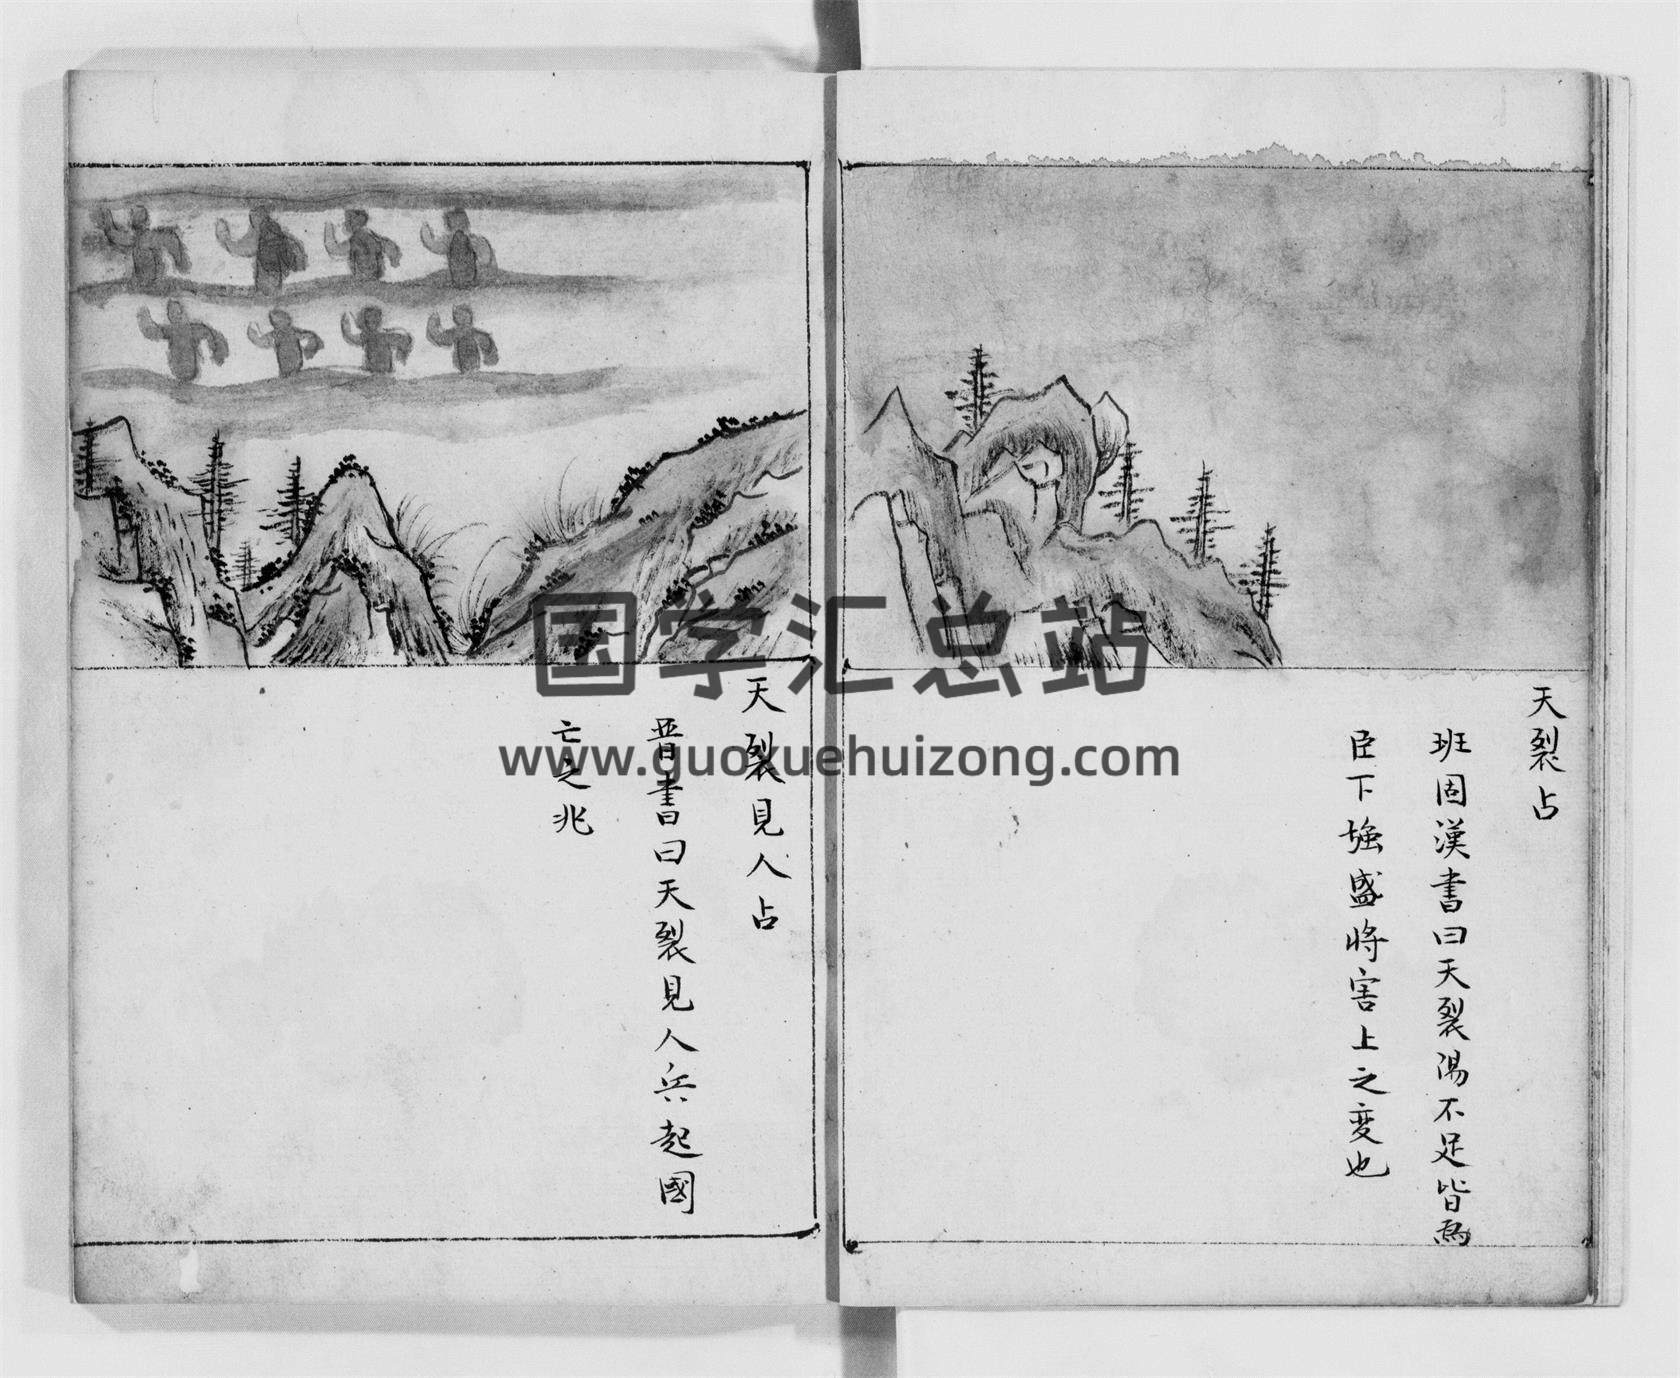 天裂占
班固漢書曰天裂陽不足皆爲
臣下強盛將害上之變也
天裂見人占
晋書曰天裂見人兵起國
亡之兆
国学汇总站
www.guoxuehuizong.com